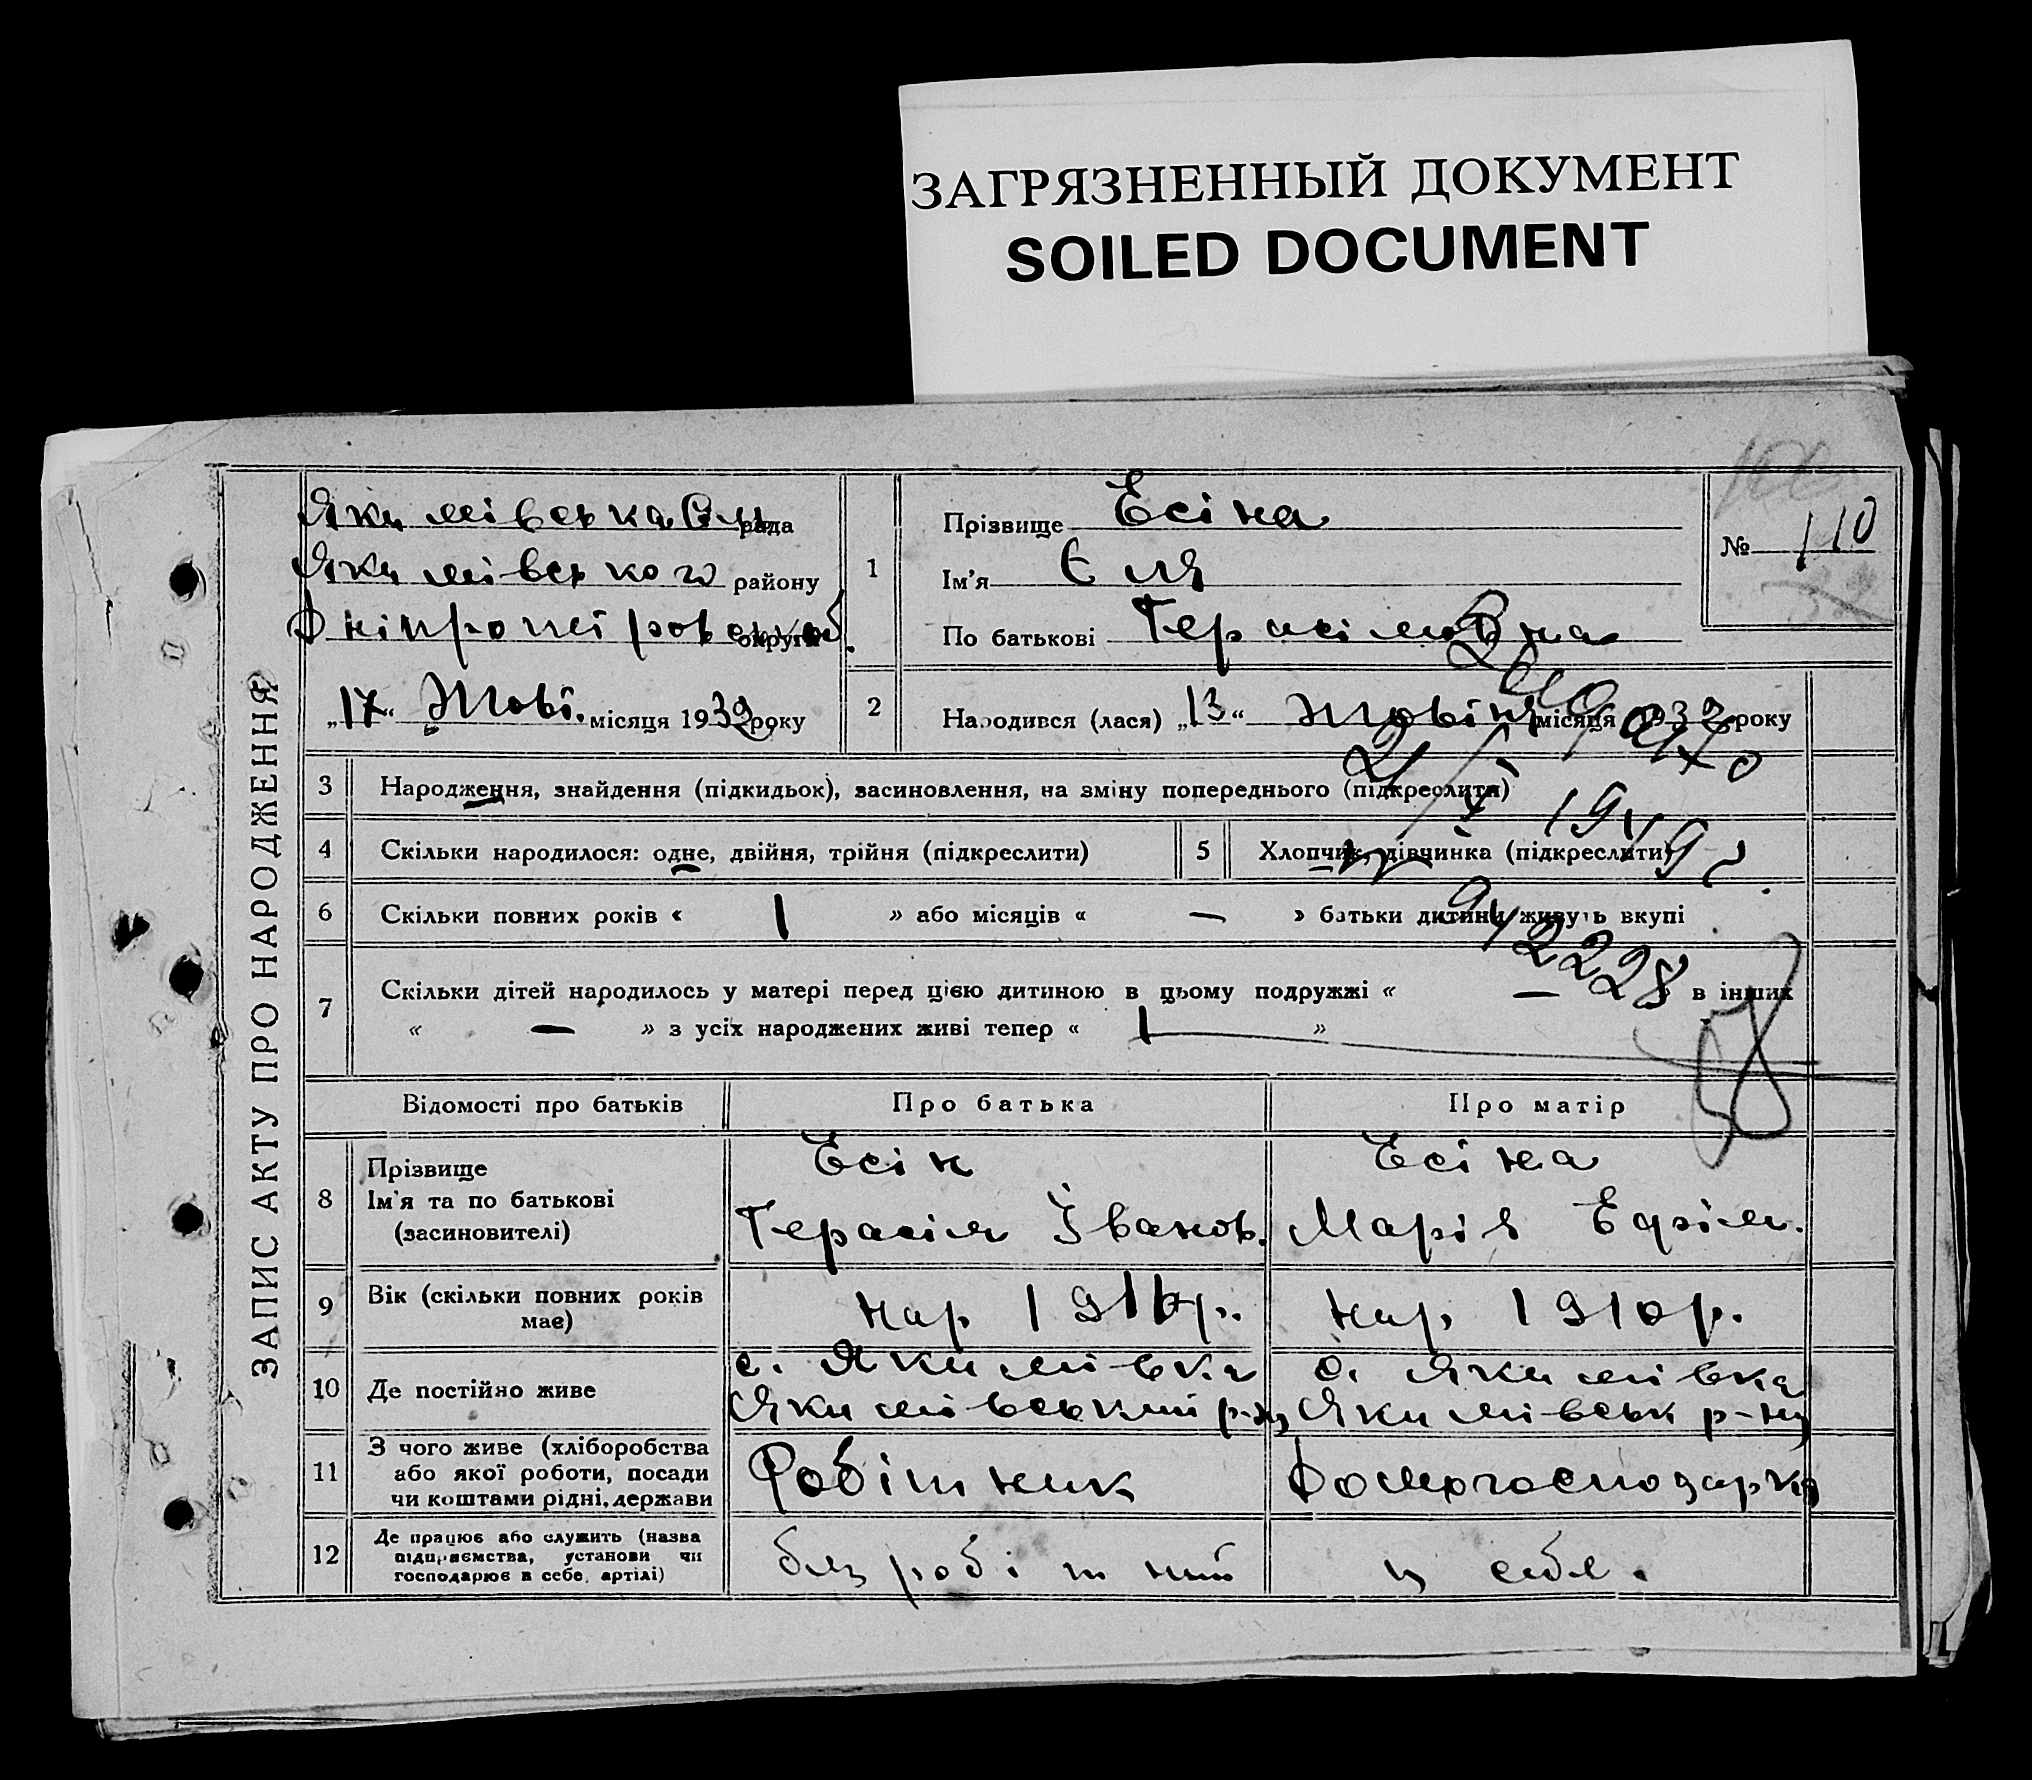 ЗАГРЯЗНЕННЫЙ ДОКУМЕНТ
SOILED DOCUMENT
ЗАПИС АКТУ ПРО НАРОДЖЕННЯ
Якимівська рада
Якимівського району
округи
„17“ Жовт. місяця 1932 року
1
Прізвище Есіна
Ім'я Еля
По батькові Герасімовна
№ 110
2
Народився (лася) „13“ Жовтня місяця 1932 року
Видано
1949 р
942228
3 Народження, знайдення (підкидьок), засиновлення, на зміну попереднього (підкреслити)
4 Скільки народилося: одне, двійня, трійня (підкреслити)
5 Хлопчик, дівчинка (підкреслити)
6 Скільки повних років « 1 » або місяців « — » батьки дитини живуть вкупі
7 Скільки дітей народилось у матері перед цією дитиною в цьому подружжі « — » в інших
« — » з усіх народжених живі тепер « 1 »
Відомості про батьків Про батька Про матір
8 Прізвище
Ім'я та по батькові
(засиновителі)
Есін
Герасім Іванов.
Есіна
Марія Ефрім.
9 Вік (скільки повних років
має)
нар 191 р.
нар 1910 р.
10 Де постійно живе
с. Якимівка
Якимівський р-ну
с. Якимівка
Якимівськ р-ну
11 З чого живе (хліборобства
або якої роботи, посади
чи коштами рідні, держави
Робітник
Домогосподарка
12 Де працює або служить (назва
підприємства, установи чи
господарює в себе, артілі)
безробітний
у себе.